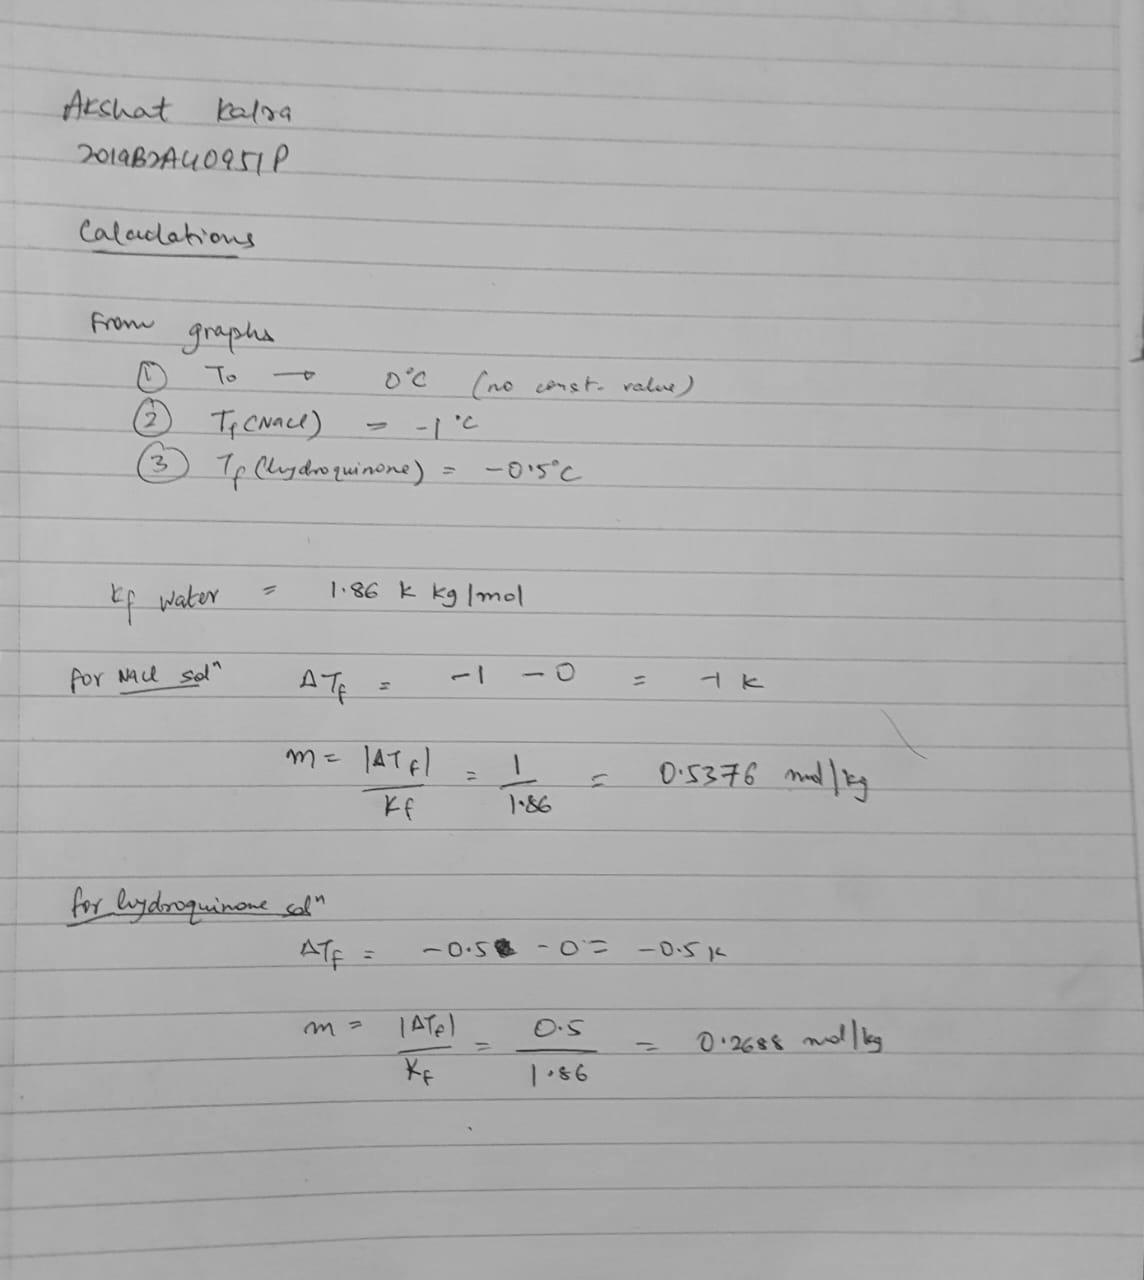 Akshat Kalra
2019B2A40951P
Calculations
From graphs
① To → 0°C (no const. value)
② Tf (NaCl) = -1°C
③ Tf (hydroquinone) = -0.5°C
Kf water = 1.86 K kg/mol
for NaCl solⁿ ΔTf = -1 - 0 = -1 K
m = |ΔTf| / Kf = 1 / 1.86 = 0.5376 mol/kg
for hydroquinone solⁿ
ΔTf = -0.5 - 0 = -0.5 K
m = |ΔTf| / Kf = 0.5 / 1.86 = 0.2688 mol/kg